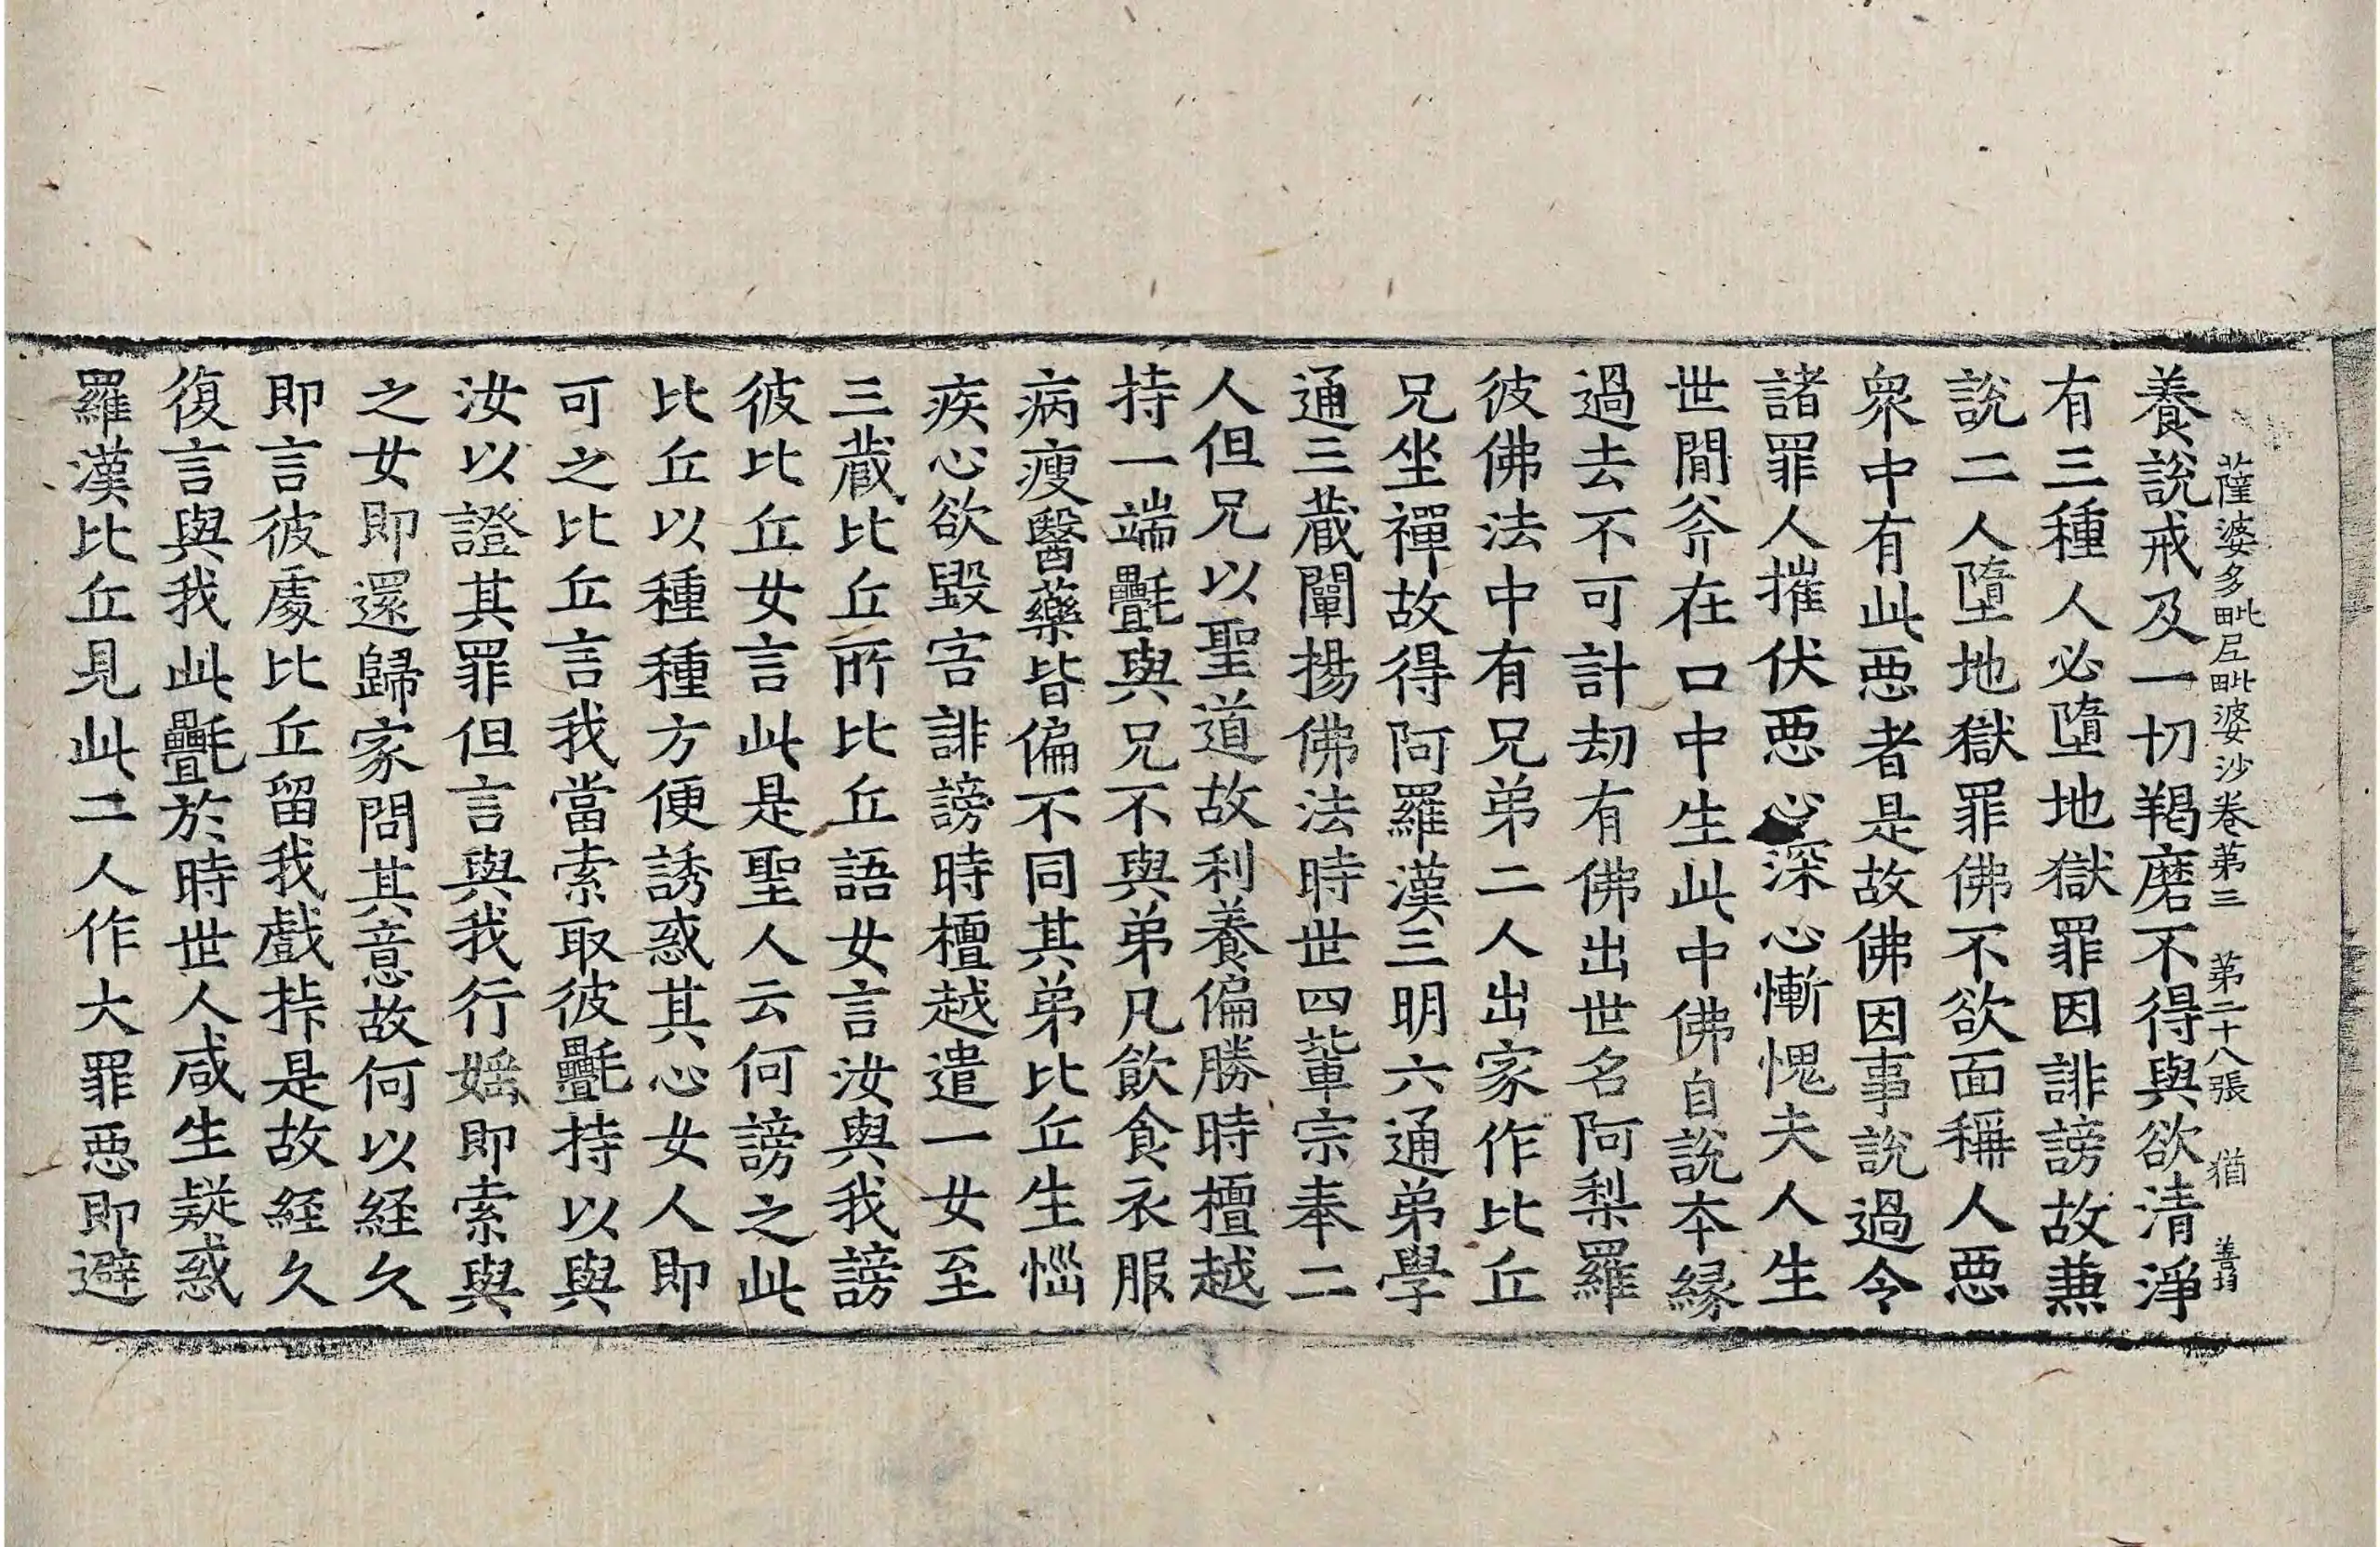 薩婆多毗尼毗婆沙卷第三 第二十八張 猶 善
養說戒及一切羯磨不得與欲清淨
有三種人必墮地獄罪因誹謗故兼
說二人墮地獄罪佛不欲面稱人惡
衆中有此惡者是故佛因事說過令
諸罪人摧伏惡心深心慚愧夫人生
世間斧在口中生此中佛自說本緣
過去不可計劫有佛出世名阿梨羅
彼佛法中有兄弟二人出家作比丘
兄坐禪故得阿羅漢三明六通弟學
通三藏闡揚佛法時世四輩宗奉二
人但兄以聖道故利養偏勝時檀越
持一端㲲與兄不與弟凡飲食衣服
病瘦醫藥皆偏不同其弟比丘生惱
疾心欲毀害誹謗時檀越遣一女至
三藏比丘所比丘語女言汝與我謗
彼比丘女言此是聖人云何謗之此
比丘以種種方便誘惑其心女人即
可之比丘言我當索取彼㲲持以與
汝以證其罪但言與我行婬即索與
之女即還歸家問其意故何以経久
即言彼處比丘留我戲挊是故経久
復言與我此㲲於時世人咸生疑惑
羅漢比丘見此二人作大罪惡即避